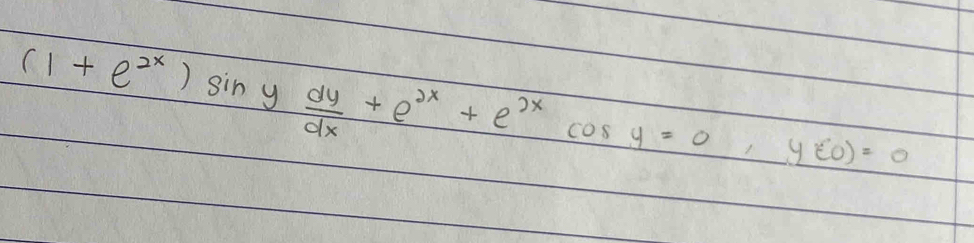 (1 + e^{2x}) sin y dy/dx + e^{2x} + e^{2x} cos y = 0 , y(0) = 0